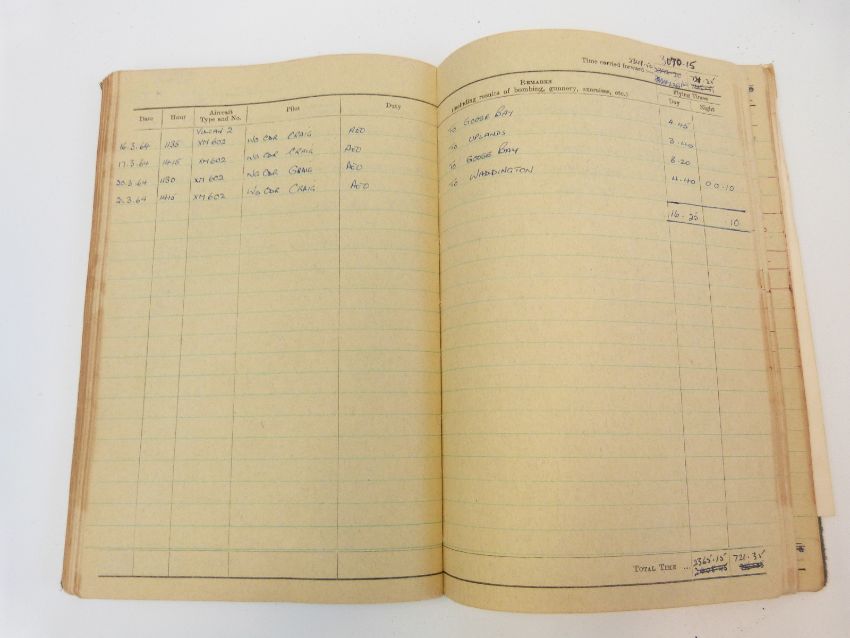 Date Hour Aircraft Type and No. Pilot Duty
VULCAN 2
16.3.64 1135 XM602 WG CDR CRAIG AEO
17.3.64 1415 XM602 WG CDR CRAIG AEO
20.3.64 1130 XM602 WG CDR CRAIG AEO
2.3.64 1415 XM602 WG CDR CRAIG AEO
3070.15
Time carried forward
REMARKS
(including results of bombing, gunnery, exercises, etc.)
Flying Times
Day Night
TO GOOSE BAY 4.45
TO UPLANDS 3.40
TO GOOSE BAY 3.20
TO WADDINGTON 4.40 00.10
16.25 10
TOTAL TIME ... 2365.15 721.35